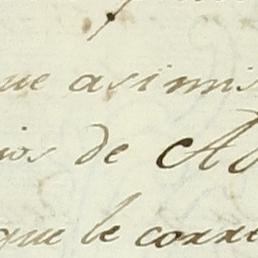 ue asimis
ios de Ad
que le corre